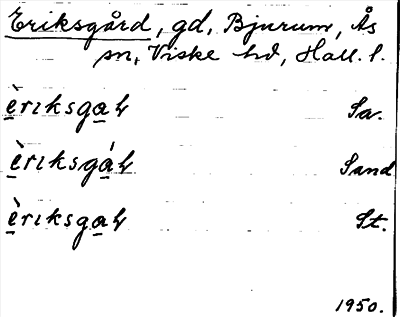 Eriksgård, gd, Bjurum, Ås
sn, Viske hd, Hall. l.
èrıksgaɬ Sa.
èrıksgáɬ Sand
èrıksgaɬ St.
1950.